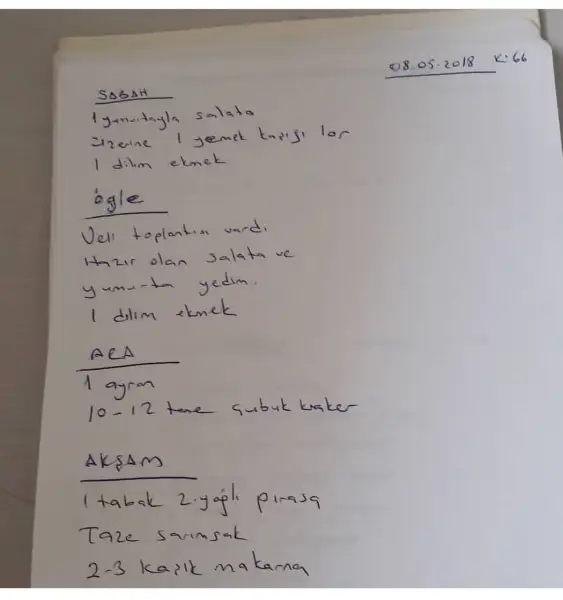 08.05.2018 K:66
SABAH
1 yumurtayla salata
üzerine 1 yemek kaşığı lor
1 dilim ekmek
öğle
Veli toplantım vardı
Hazır olan salata ve
yumurta yedim.
1 dilim ekmek
ARA
1 ayran
10-12 tane çubuk kraker
AKŞAM
1 tabak z.yağlı pırasa
Taze sarımsak
2-3 kaşık makarna